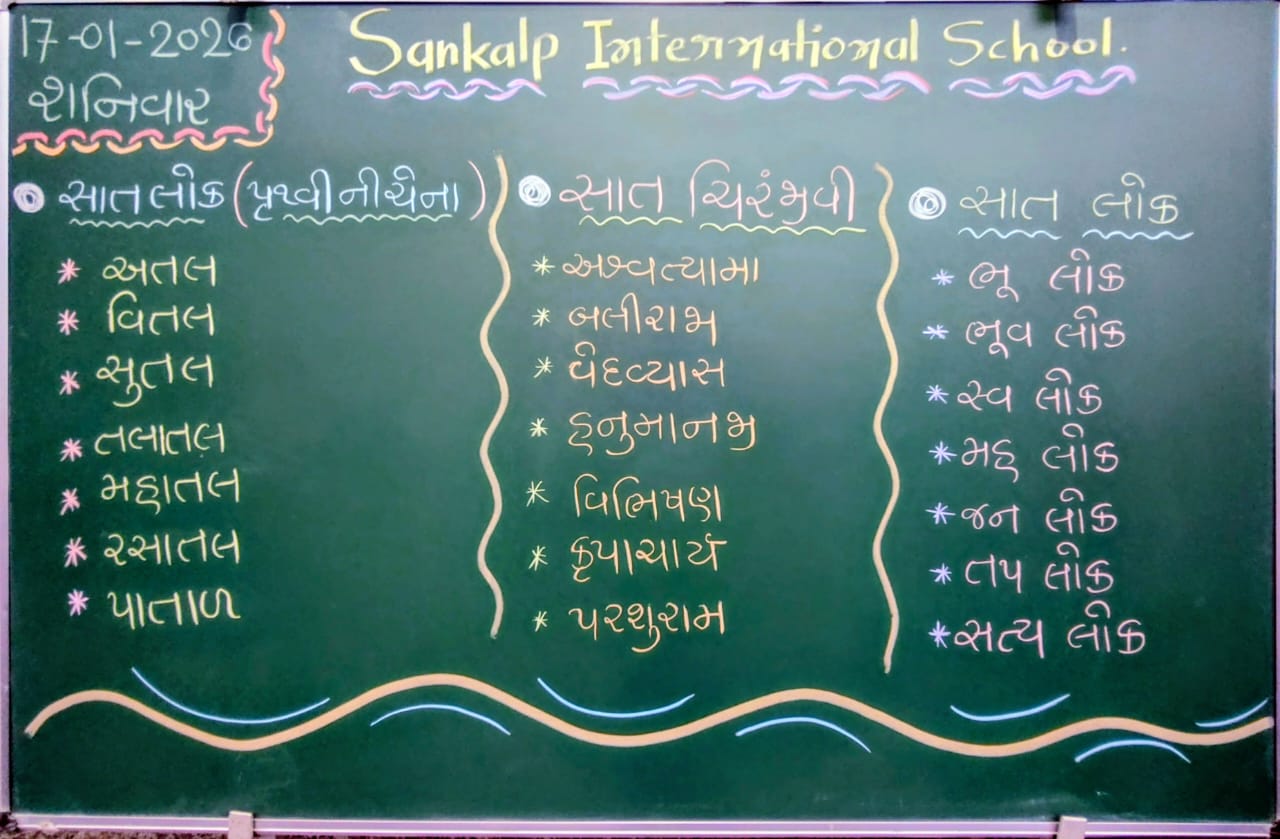 17-01-2026
શનિવાર
Sankalp International School.
સાત લોક (પૃથ્વી નીચેના)
* અતલ
* વિતલ
* સુતલ
* તલાતલ
* મહાતલ
* રસાતલ
* પાતાળ
સાત ચિરંજીવી
* અશ્વત્યામા
* બલીરાજા
* વેદવ્યાસ
* હનુમાનજી
* વિભિષણ
* કૃપાચાર્ય
* પરશુરામ
સાત લોક
* ભૂ લોક
* ભૂવ લોક
* સ્વ લોક
* મહ લોક
* જન લોક
* તપ લોક
* સત્ય લોક